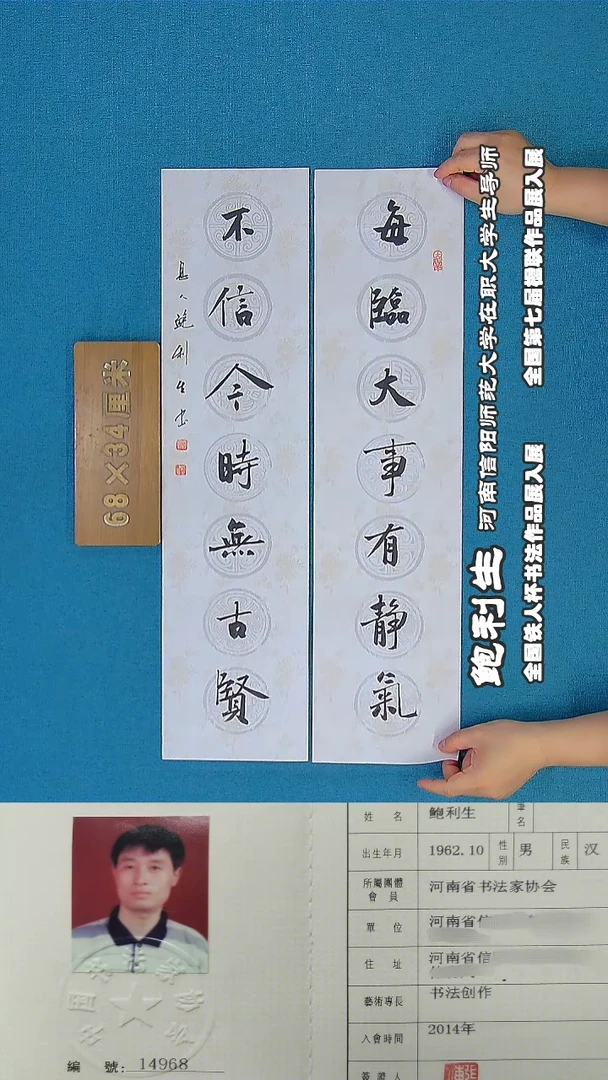 每臨大事有靜氣
不信今時無古賢
息人鲍利生书
68×34厘米
鲍利生 河南信阳师范大学在职大学生导师
全国铁人杯书法作品展入展 全国第七届楹联作品展入展
姓名 鲍利生 筆名
出生年月 1962.10 性別 男 民族 汉
所屬團體會員 河南省书法家协会
單位 河南省信
住址 河南省信
藝術專長 书法创作
入會時間 2014年
簽證人
編號: 14968